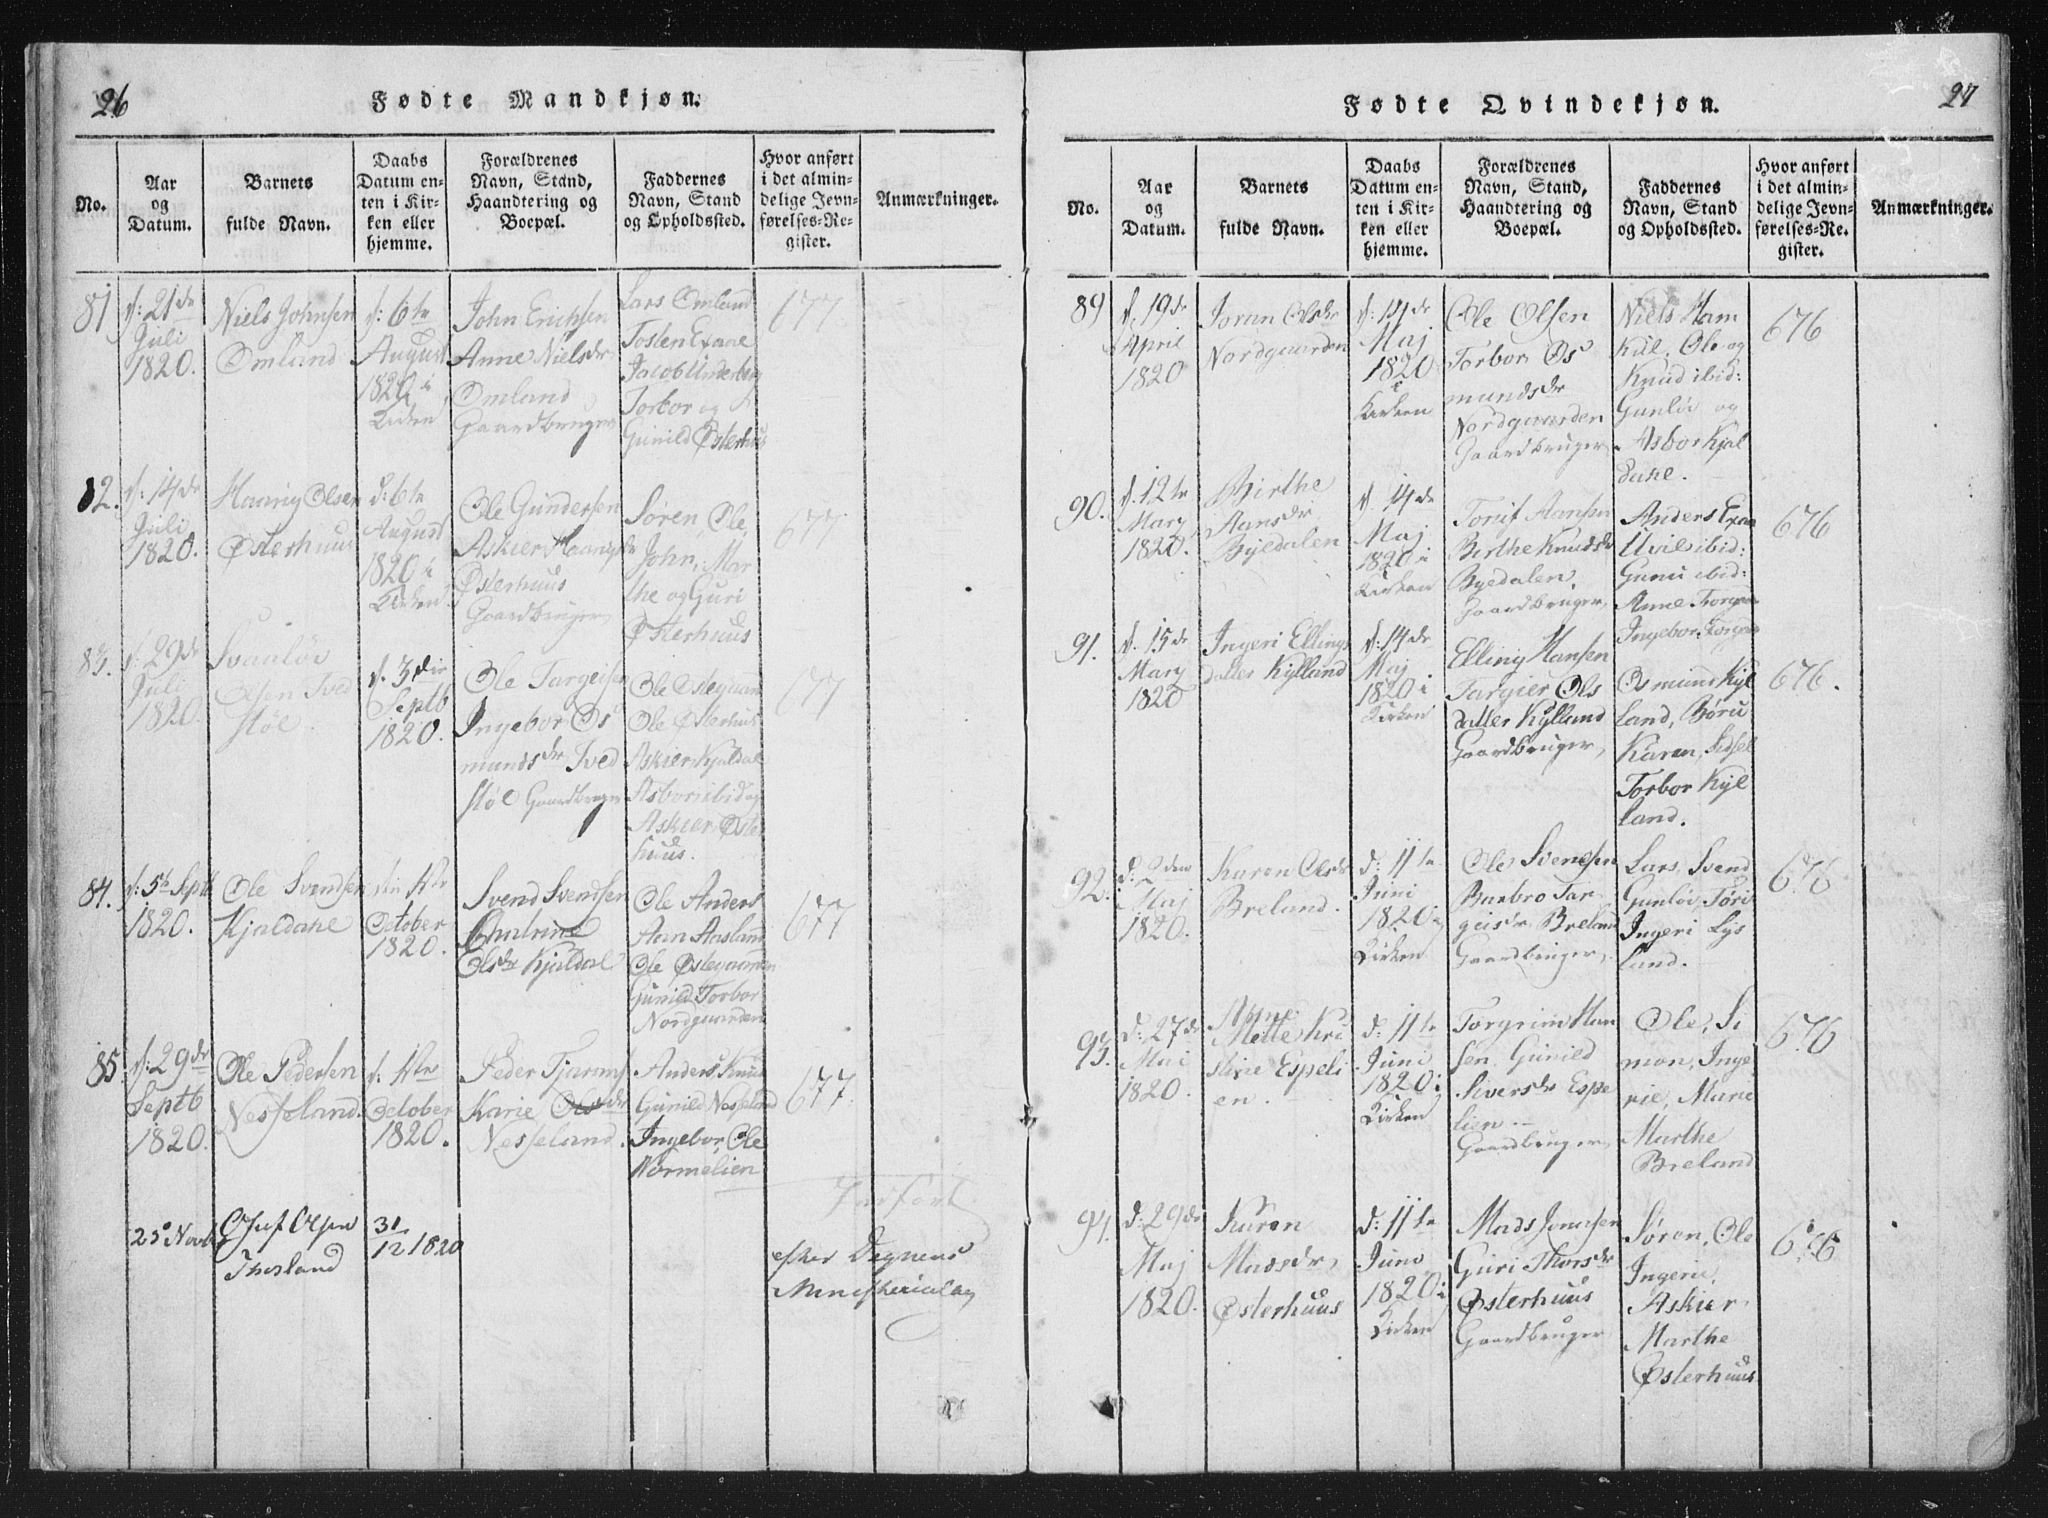 26
Fødte Mandkjøn.
No.
Aar
og
Datum.
Barnets
fulde Navn.
Daabs
Datum en-
ten i Kir-
ken eller
hjemme.
Forældrenes
Navn, Stand,
Haandtering og
Boepæl.
Faddernes
Navn, Stand
og Opholdssted.
Hvor anført
i det almin-
delige Jevn-
førelses-Re-
gister.
Anmærkninger.
81
d: 21de
Juli
1820.
Niels Johnsen
Omland
d: 6te
August
1820 i
Kirken
John Erichsen
Anne Nielsdr
Omland
Gaardbruger
Lars Omland
Tosten Exaae
Jacob Underberg
Torbor og
Gunild Østerhuus
677
82.
d: 14de
Juli
1820.
Haaniy Olsen
Østerhuus
d: 6te
August
1820 i
Kirken
Ole Gundersen
Askier Haanysdr
Østerhuus
Gaardbruger
Søren, Ole,
John, Mar
the og Guri
Østerhuus
677
83.
d: 29de
Juli
1820.
Svanløv
Olsen Tved
støl.
d. 3die
Septb
1820.
Ole Targeisen
Ingebor Os
mundsdr Tved
støl Gaardbruger
Ole Østegaarn
Ole Østerhuus
Askier Kjaldal
Asbor ibid og
Askier Øster
huus.
677
84.
d: 5te Septb
1820.
Ole Svendsen
Kjaldahl
den 1ste
October
1820.
Svend Svendsen
Cathrine
Olsdr Kjaldal
Ole Anders
Aan Aasland
Ole Østegaarnen
Gunild Torbor
Nordgaarden
677
85
d: 29de
Septb
1820.
Ole Pedersen
Nesseland.
d: 1ste
October
1820.
Peder Tjoroms
Karie Olsdr
Nesseland.
Anders Knud
Gunild Nesseland
Ingebor, Ole
Wormelien
677
25e Novb
Oluf Olsen
Thorsland
31/12 1820
Indført
efter Degnens
Ministerialbog
27
Fødte Qvindekjøn.
No.
Aar
og
Datum.
Barnets
fulde Navn.
Daabs
Datum en-
ten i Kir-
ken eller
hjemme.
Forældrenes
Navn, Stand,
Haandtering og
Boepæl.
Faddernes
Navn, Stand
og Opholdssted.
Hvor anført
i det almin-
delige Jevn-
førelses-Re-
gister.
Anmærkninger.
89
d. 19de
April
1820
Joran Olsdr
Nordgaarden
d: 14de
Maj
1820
i
Kirken
Ole Olsen
Torbor Os
mundsdr
Nordgaarden
Gaardbruger
Niels Ham
kul, Ole og
Knud ibid:
Gunløv og
Asbor Kjal
dahl.
676
90.
d. 12te
Mary
1820.
Birthe
Aansdr
Byedalen
d. 14de
Maj
1820 i
Kirken
Toruf Aansen
Birthe Knudsdr
Byedalen.
Gaardbruger
Anders Exaa
Uvil ibid:
Guni ibid:
Anne
Ingebor
676
91.
d. 15de
Mary
1820
Ingeri Ellings
datter Kylland
d: 14de
Maj
1820 i
Kirken
Elling Hansen
Targier Ols
datter Kylland
Gaardbruger,
Osmund Kyl
land, Børu
Karen, Sidsel
Torbor Kyl
land.
676.
92.
d: 2den
Maj
1820.
Karen Olsdr
Breland.
d: 11te
Juni
1820 i
Kirken
Ole Svensen
Barbro Tar
geisdr Breland
Gaardbruger,
Lars, Svend
Gunløv, Tøri
Ingeri Lys
land.
676
93.
d: 27de
Mai
1820.
Mette Kri
stine Espeli
en.
d: 11te
Juni
1820 i
Kirken
Torgrim Han
sen, Gunild
Siversdr Espe
lien
Gaardbruger
Ole, Si
mon, Inge
rie, Marie
Marthe
Breland
676
94.
d: 29de
Maj
1820.
Karen
Madsdr
Østerhuus
d: 11te
Juni
1820 i
Kirken
Mads Jonasen
Guri Thorsdr
Østerhuus
Gaardbruger
Søren, Ole
Ingerie,
Askier
Marthe
Østerhuus
676